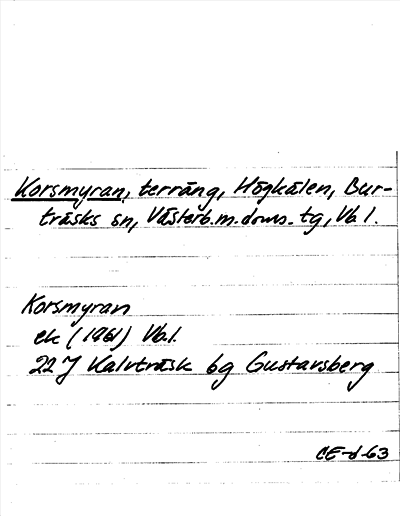 Korsmyran, terräng, Högkälen, Bur-
träsks sn, Västerb.m.doms.tg, Vb l.
Korsmyran
ek (1961) Vb.l.
22 J Kalvträsk 6g Gustavsberg
CE-d-63